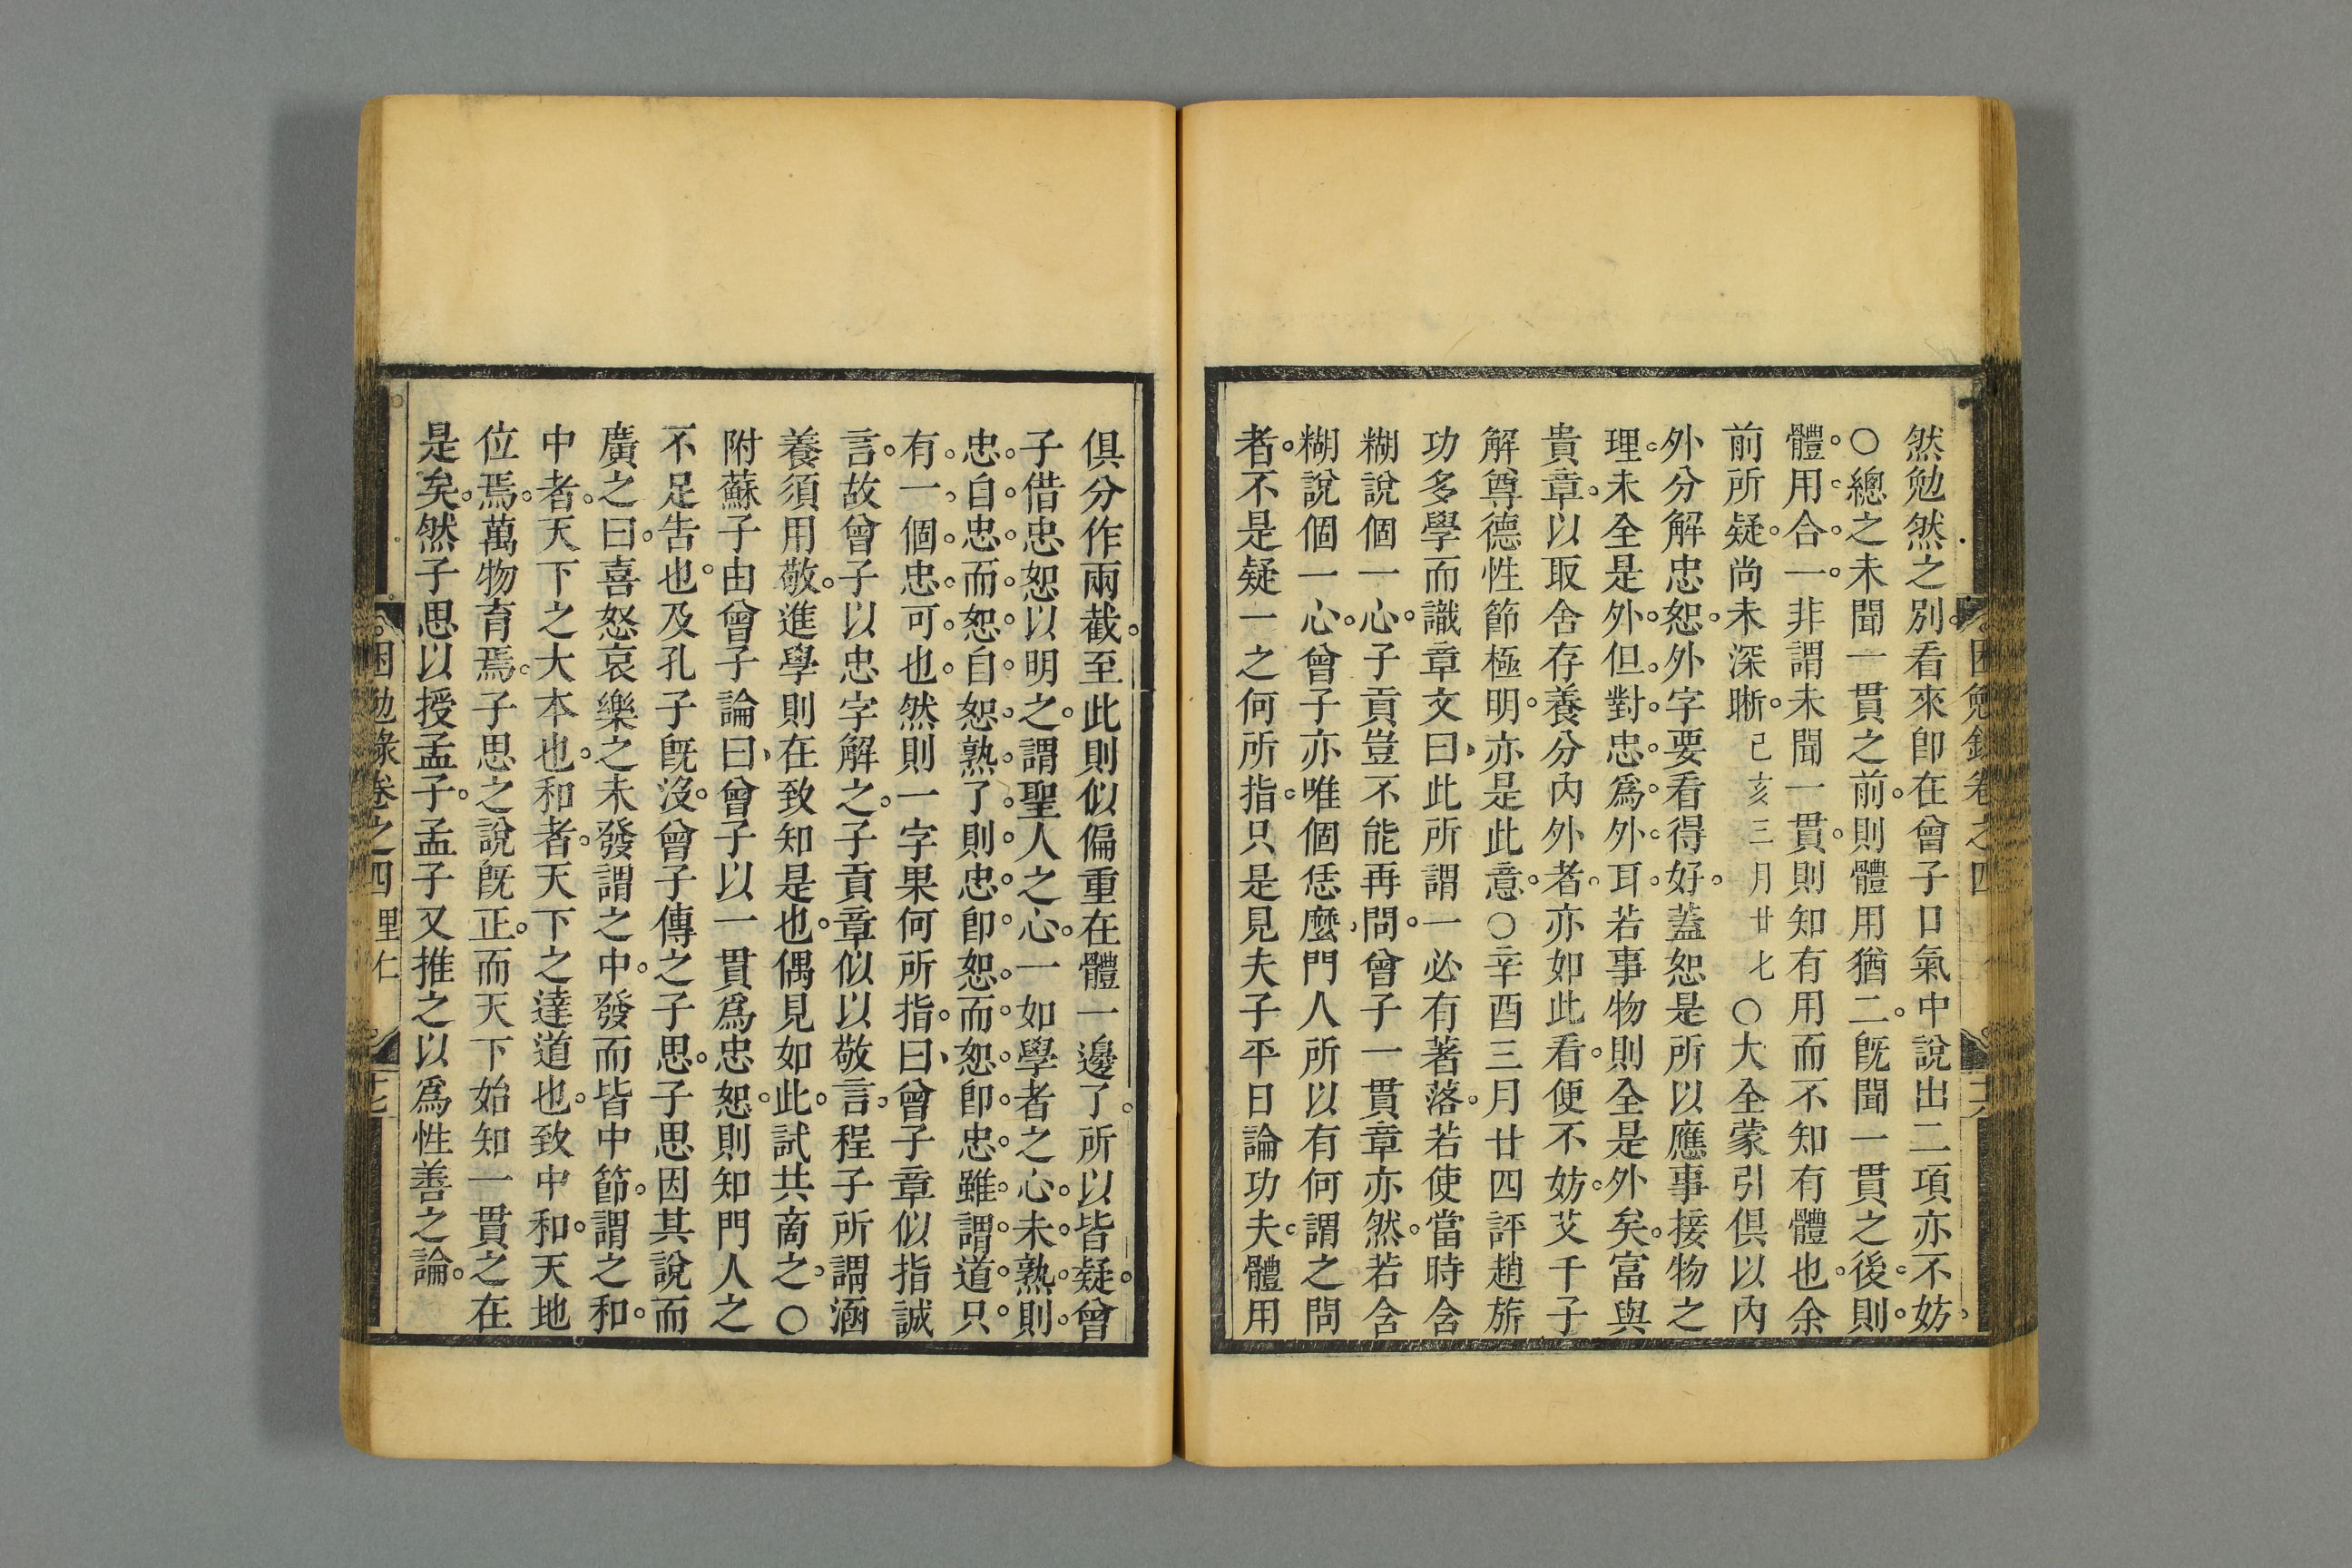 困勉錄卷之四
十六
然勉然之別。看來卽在曾子口氣中說出二項亦不妨。
○總之未聞一貫之前。則體用猶二。旣聞一貫之後。則。
體。用。合。一。非謂未聞一貫。則知有用而不知有體也。余
前所疑。尚未深晰。己亥三月廿七○大全蒙引俱以內
外分解忠恕。外字要看得好。蓋恕是所以應事接物之
理。未全是外。但。對。忠。爲。外。耳。若事物則全是外矣。富與
貴章。以取舍存養分內外者。亦如此看。便不妨。艾千子
解尊德性節極明。亦是此意。○辛酉三月廿四評趙旂
功多學而識章文曰、此所謂一必有著落。若使當時含
糊說個一心。子貢豈不能再問。曾子一貫章亦然。若含
糊說個一心。曾子亦唯個恁麼、門人所以有何謂之問
者。不是疑一之何所指。只是見夫子平日論功夫。體用
俱分作兩截。至此則似偏重在體一邊了。所以皆疑。曾
子借忠恕以明之。謂聖人之心。一如學者之心。未。熟。則。
忠。自。忠。而。恕。自。恕。熟。了。則。忠。卽。恕。而。恕。卽。忠。雖。謂。道。只
有。一。個。忠。可。也。然則一字果何所指。曰、曾子章似指誠
言。故曾子以忠字解之。子貢章似以敬言。程子所謂涵
養須用敬。進學則在致知是也。偶見如此。試共商之。○
附蘇子由曾子論曰、曾子以一貫爲忠恕。則知門人之
不足告也。及孔子旣沒。曾子傳之子思。子思因其說而
廣之曰。喜怒哀樂之未發謂之中。發而皆中節。謂之和。
中者。天下之大本也。和者。天下之達道也。致中和。天地
位焉。萬物育焉。子思之說旣正。而天下始知一貫之在
是矣。然子思以授孟子。孟子又推之以爲性善之論。
困勉錄卷之四 里仁
十七